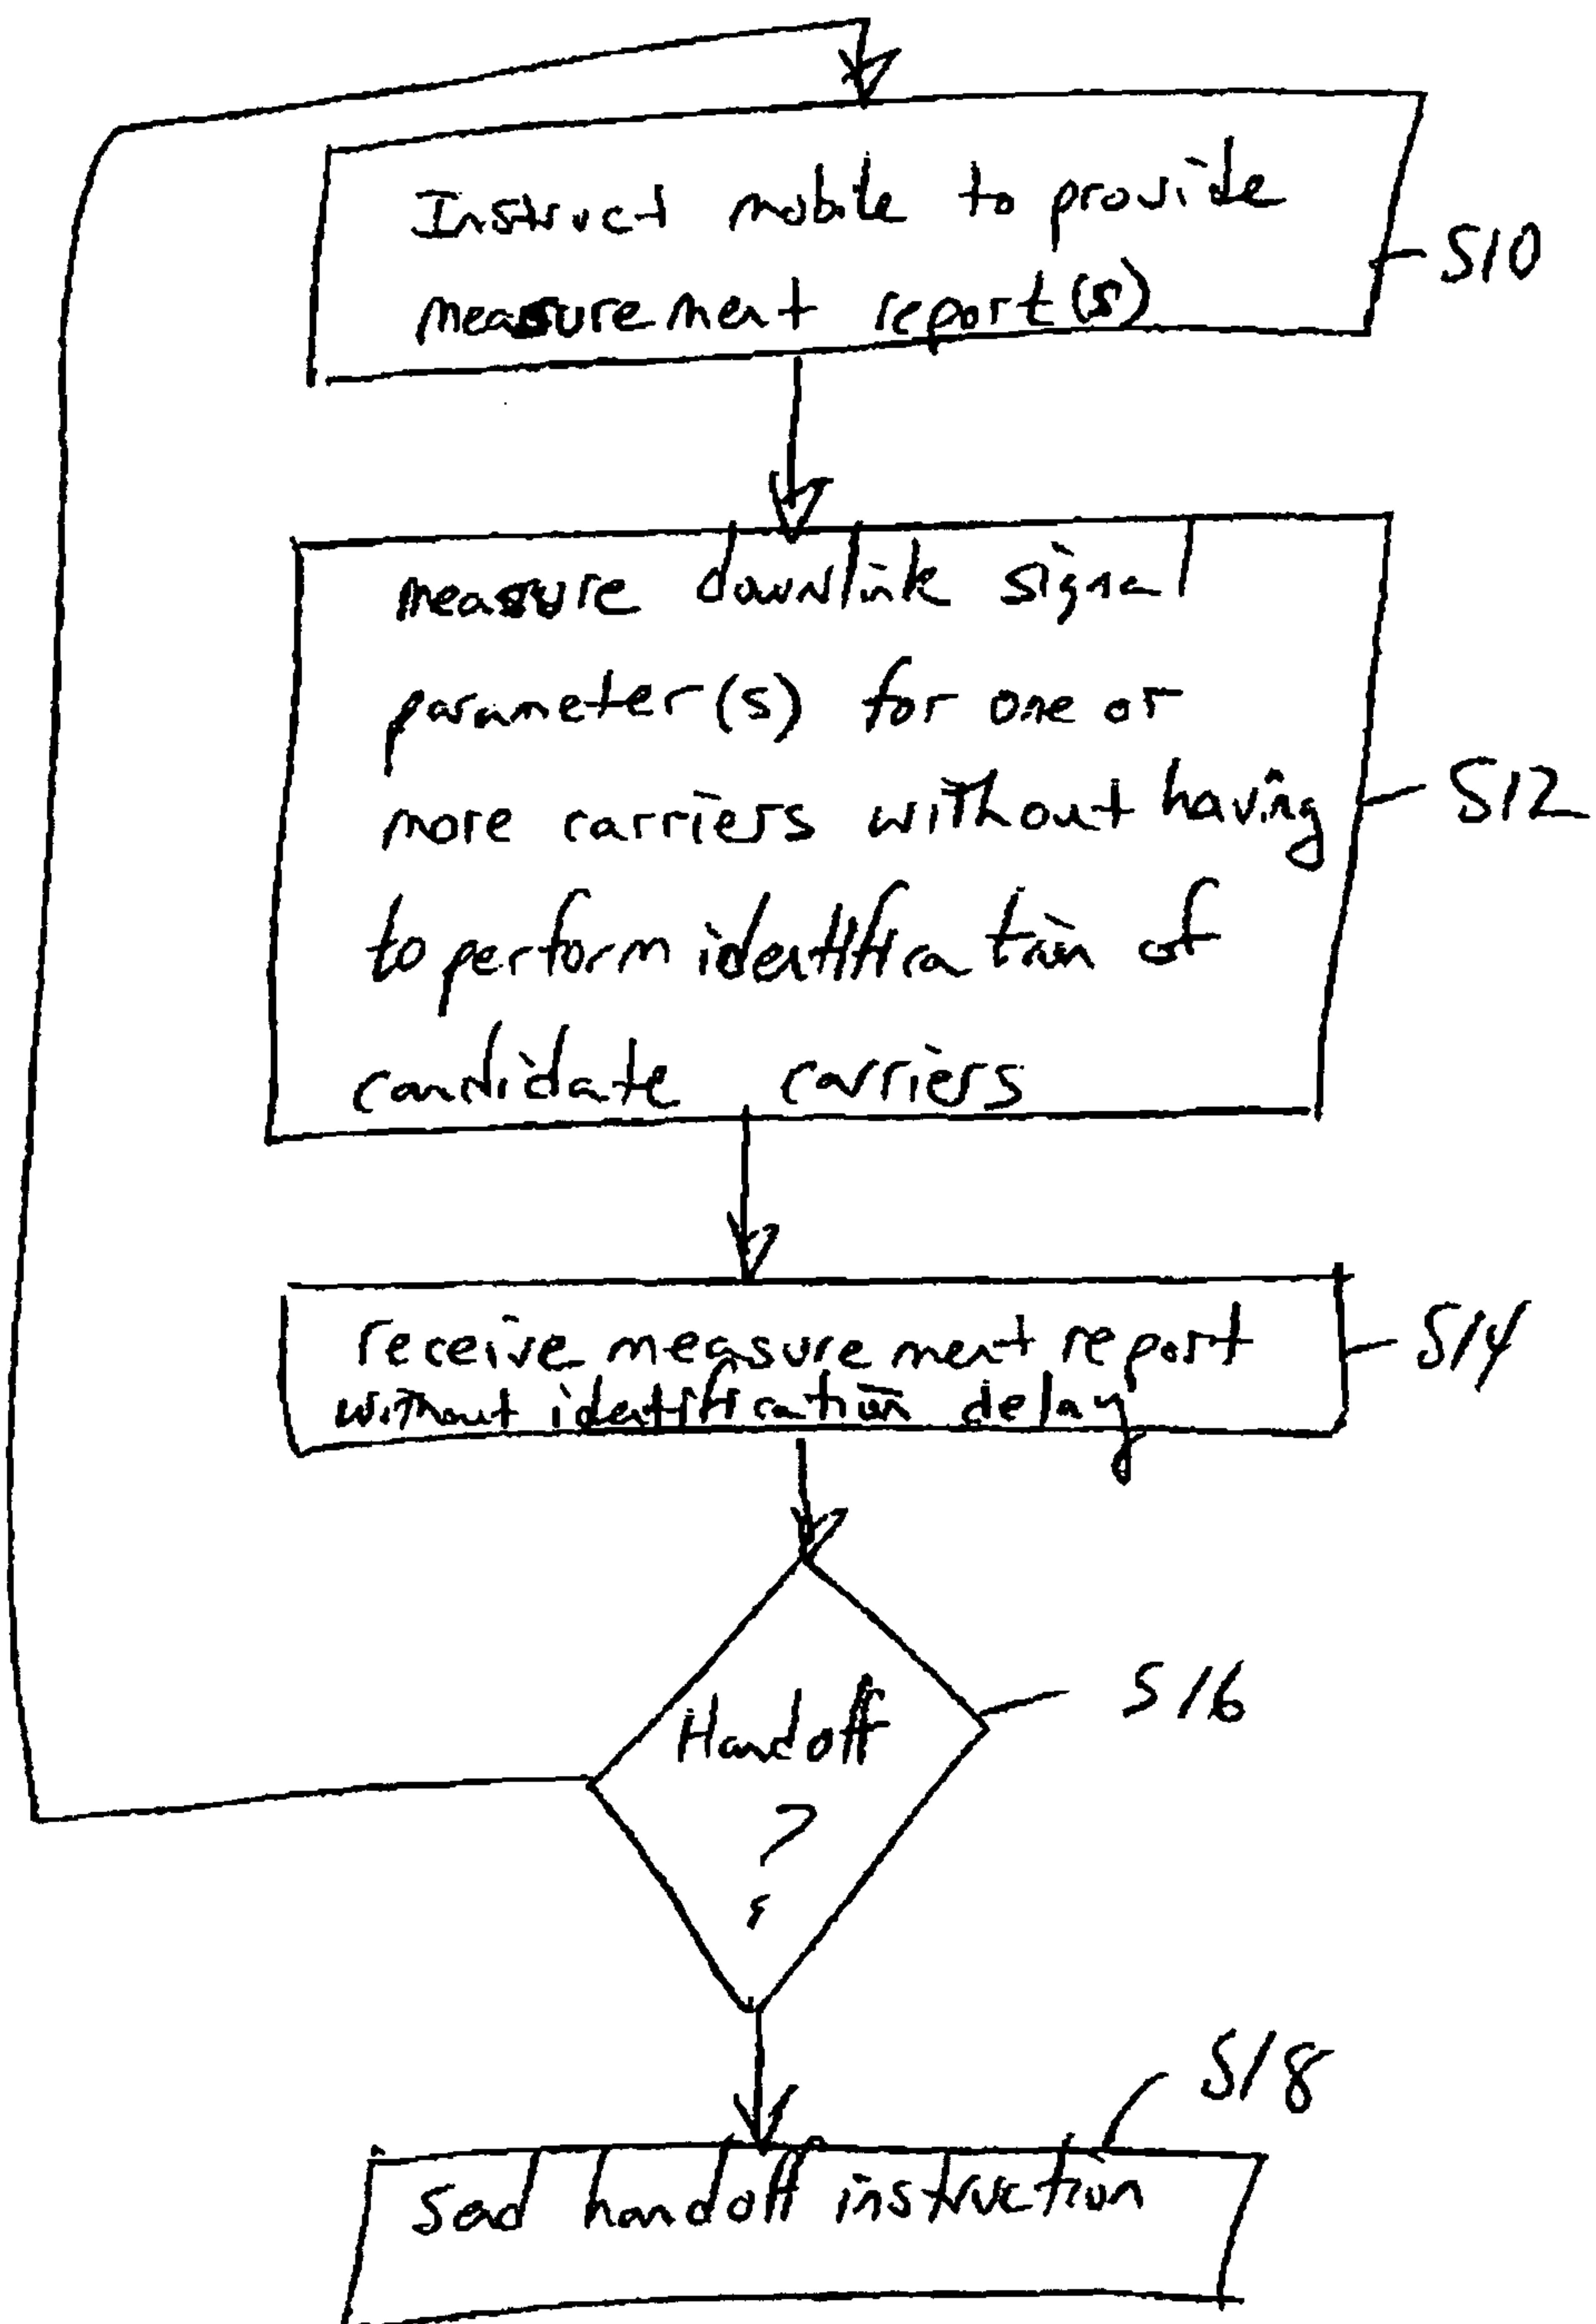 Instruct mobile to provide
measurement report(s)
S10
measure downlink signal
parameter(s) for one or
more carriers without having
to perform identification of
candidate carriers
S12
receive measurement report
without identification delay
S14
Handoff
?
S16
S18
Send handoff instruction